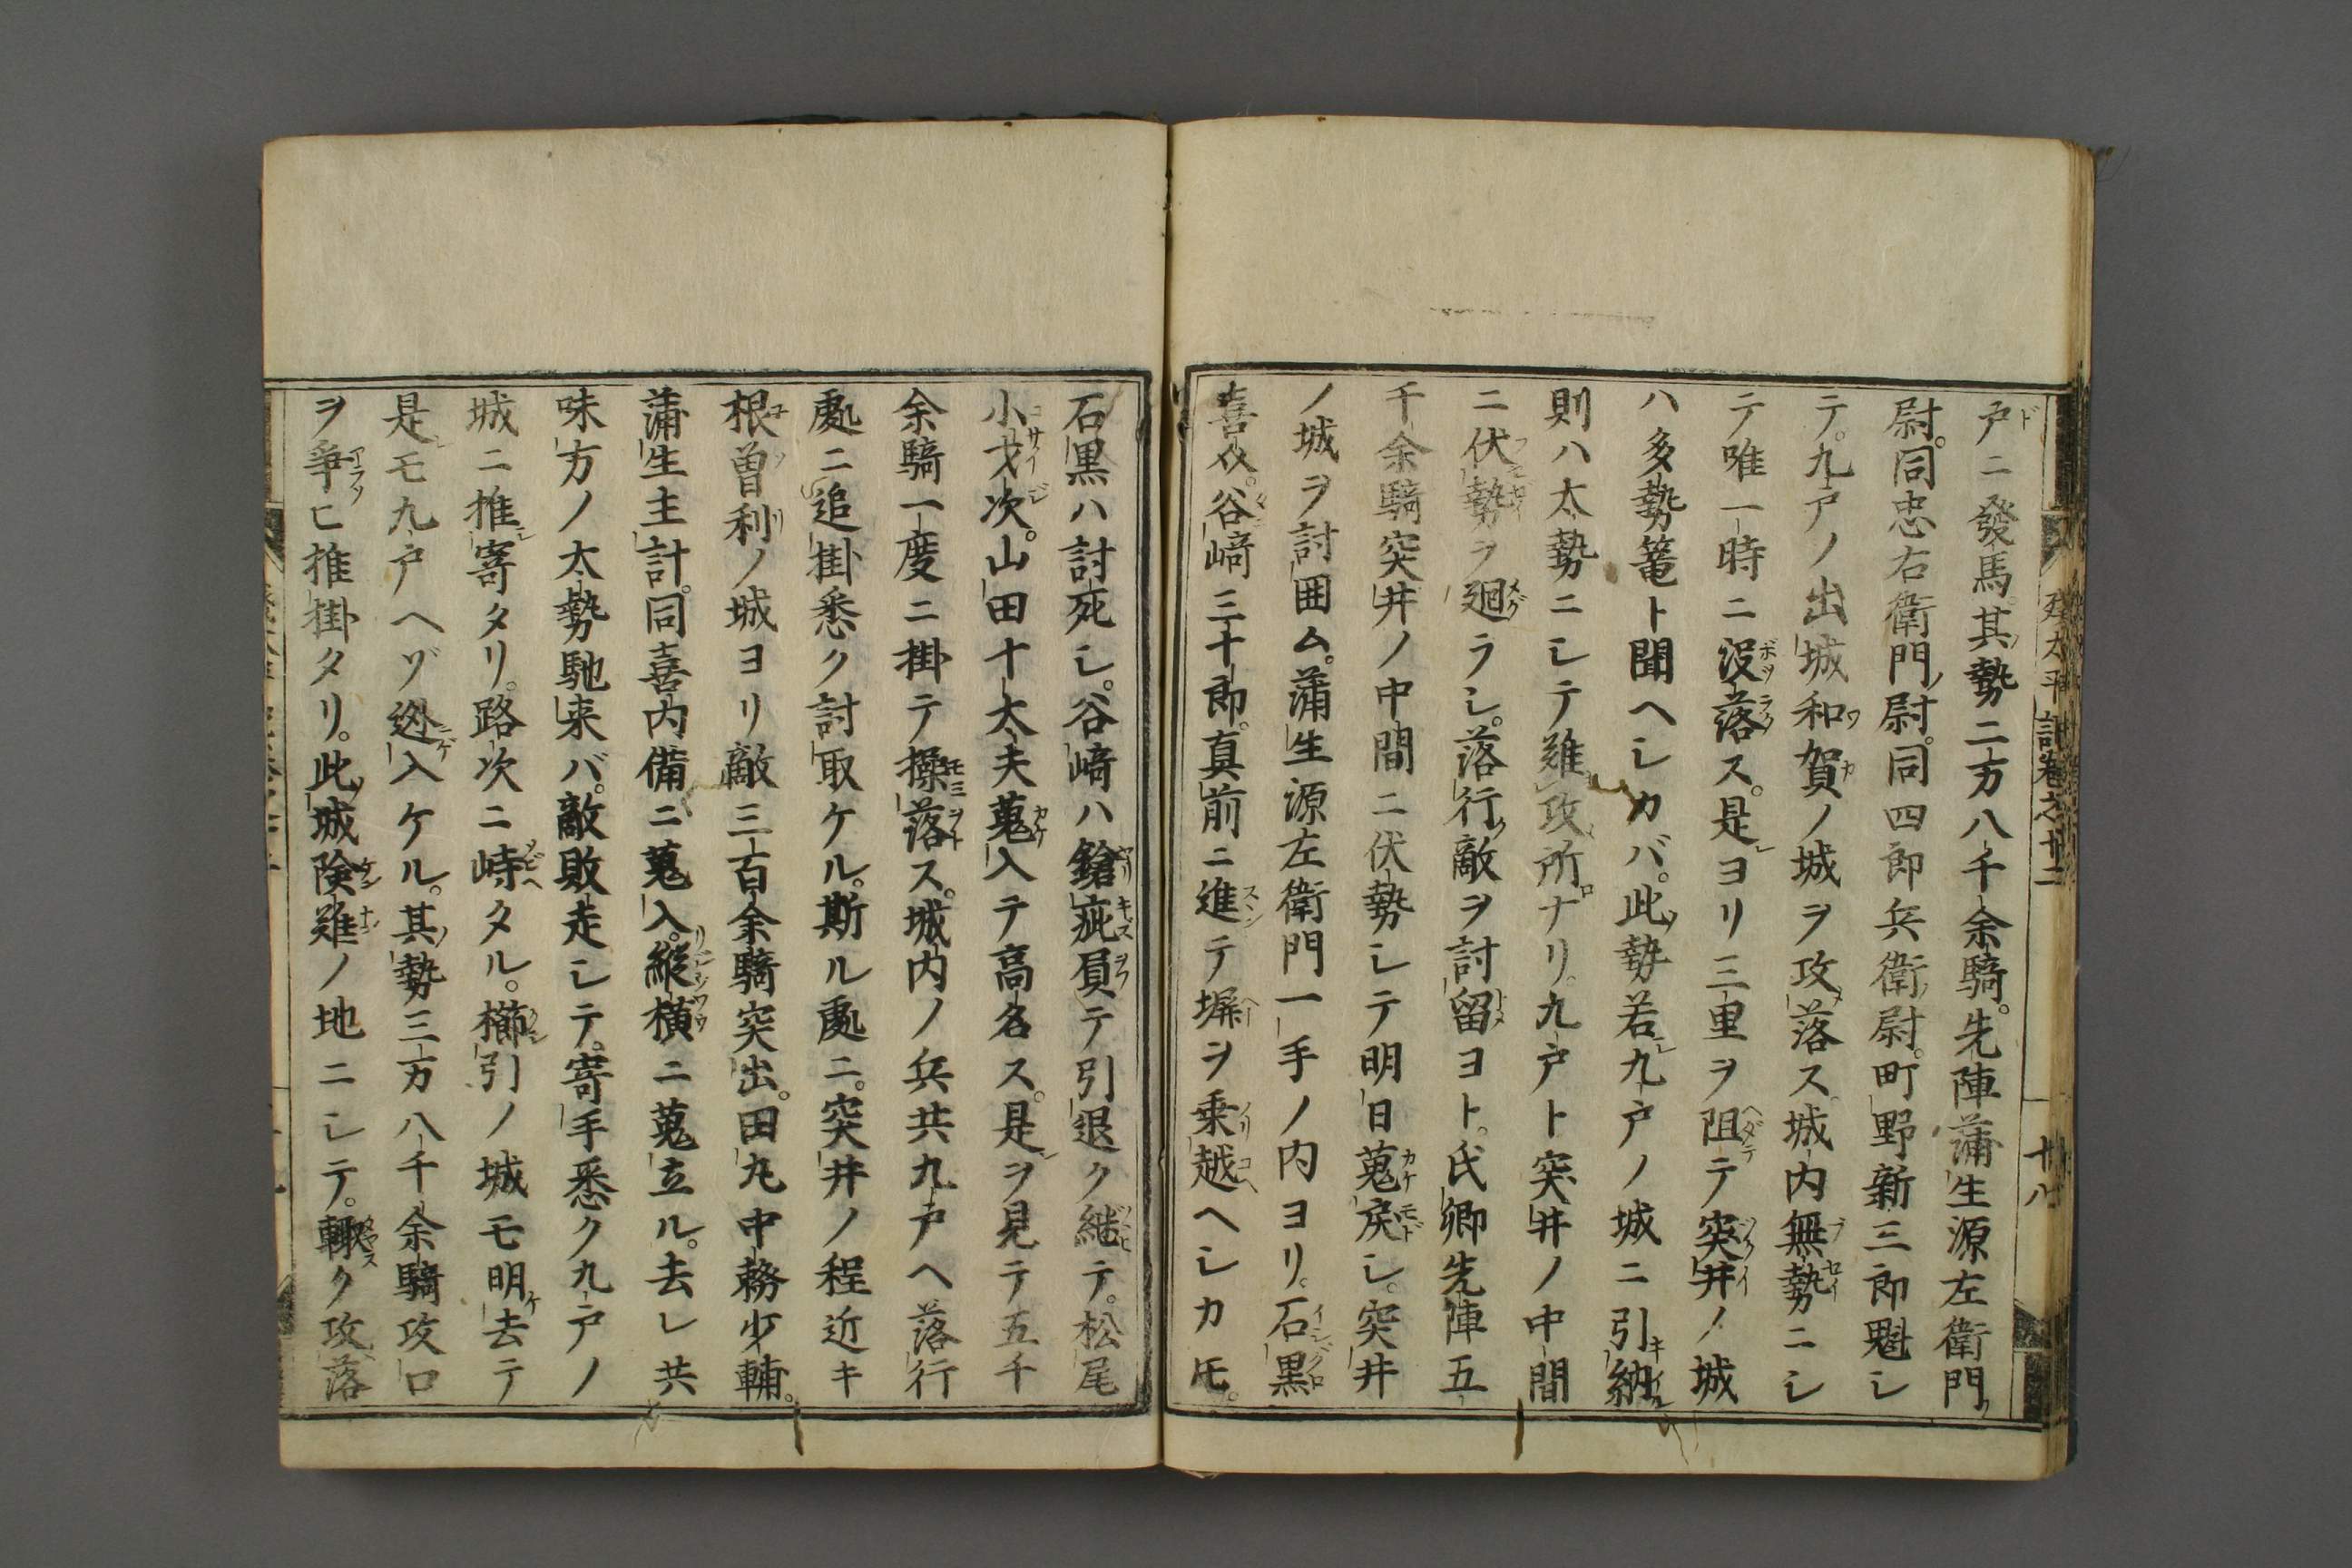 戸ニ發馬其勢二万八千余騎。先陣蒲生源左衛門
尉。同忠右衛門尉。同四郎兵衛尉。町野新三郎魁シ
テ。九戸ノ出城和賀ノ城ヲ攻落ス。城内無勢ニシ
テ唯一時ニ沒落ス。是ヨリ三里ヲ阻テ突井ノ城
ハ多勢篭ト聞ヘシカバ。此勢若九戸ノ城ニ引納
則ハ太勢ニシテ難攻所ナリ。九戸ト突井ノ中間
ニ伏勢ヲ廻ラシ。落行敵ヲ討留ヨト。氏卿先陣五
千余騎突井ノ中間ニ伏勢シテ明日蒐戻シ。突井
ノ城ヲ討囲ム。蒲生源左衛門一手ノ内ヨリ。石黒
喜 。谷﨑三十郎。真前ニ進テ塀ヲ乗越ヘシカ圧。
太平記卷之廿二
十八
石黒ハ討死シ。谷﨑ハ鎗疵負テ引退ク継テ。松尾
小才次。山田十太夫蒐入テ高名ス。是ヲ見テ五千
余騎一度ニ掛テ操落ス。城内ノ兵共九戸ヘ落行
處ニ追掛悉ク討取ケル。斯ル處ニ。突井ノ程近キ
根曽利ノ城ヨリ敵三百余騎突出。田丸中務少輔。
蒲生主計。同喜内備ニ蒐入。縦横ニ蒐立ル。去レ共
味方ノ太勢馳来バ。敵敗走シテ。寄手悉ク九戸ノ
城ニ推寄タリ。路次ニ峙タル。櫛引ノ城モ明去テ
是モ九戸ヘゾ迯入ケル。其勢三万八千余騎攻口
ヲ爭ヒ推掛タリ。此城険難ノ地ニシテ。輙ク攻落